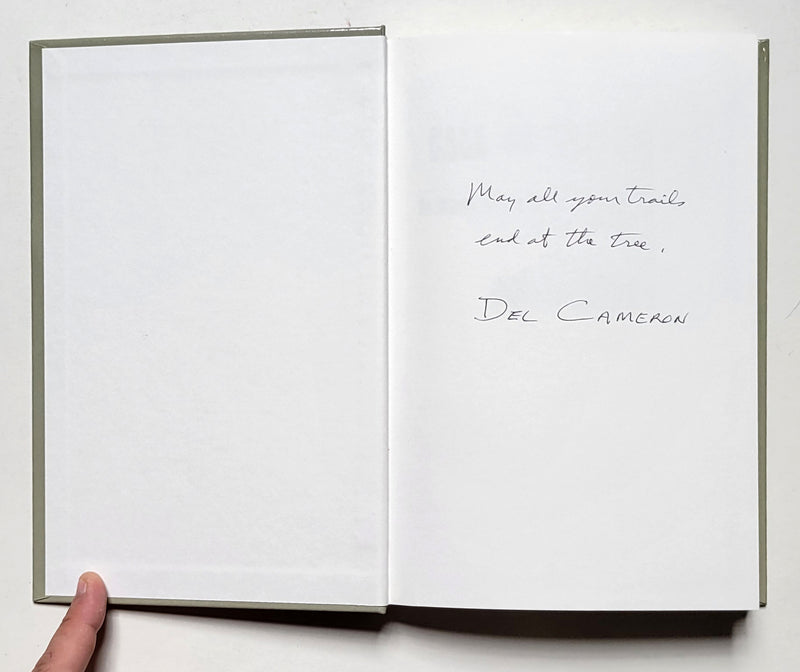 May all your trails
end at the tree.
DEL CAMERON